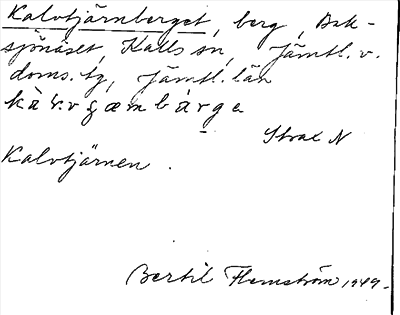 Kalvtjärnberget, berg, Bak-
sjönäset, Kalls sn, Jämtl. v.
doms. tg, Jämtl. län
Strax N
Kalvtjärnen.
Bertil Flemström 1949.